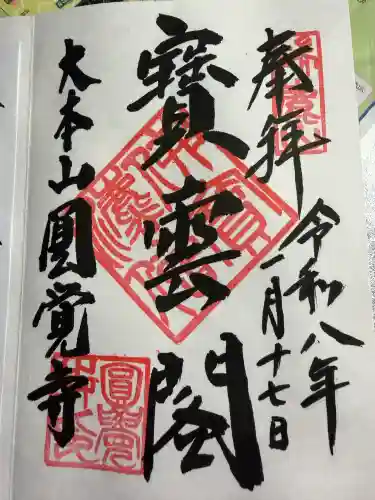 奉拝
令和八年
一月十七日
寳雲閣
大本山圓覚寺